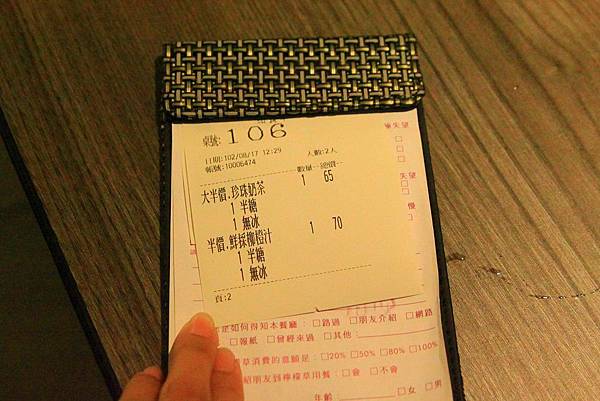 桌號: 106
日期:102/08/17 12:29 人數:2人
帳號:10006474
數量--總價--
大半價.珍珠奶茶 1 65
1 半糖
1 無冰
半價.鮮採柳橙汁 1 70
1 半糖
1 無冰
頁:2
失望
□
□
□
失望
□
□
慢
是如何得知本餐廳:□路過 □朋友介紹 □網路
□報紙 □曾經來過 □其他
草消費的意願是:□20% □50% □80% □100%
紹朋友到檸檬草用餐:□會 □不會
年齡 □女 □男